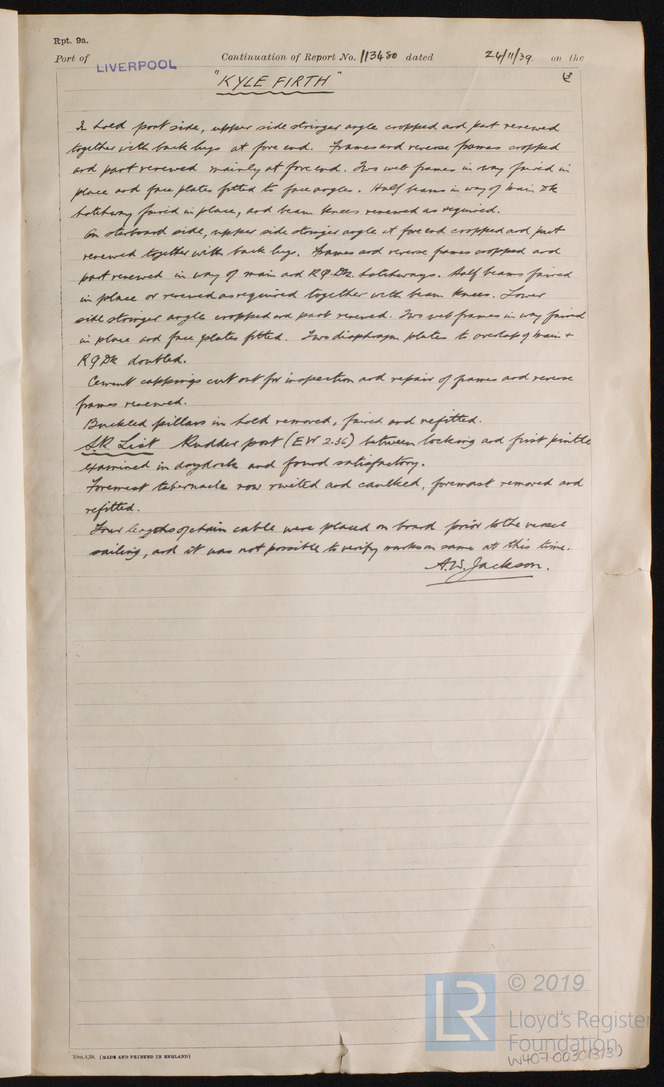 Rpt. 9a.
Port of LIVERPOOL Continuation of Report No. 113480 dated 24/11/39 on the
"KYLE FIRTH"
In hold port side, upper side stringer angle cropped and part renewed
together with back lugs at fore end. Frames and reverse frames cropped
and part renewed mainly at fore end. Two web frames in way faired in
place and face plates fitted to face angles. Half beams in way of main Dk
hatchway faired in place, and beam knees renewed as required.
On starboard side, upper side stringer angle at fore end cropped and part
renewed together with back lug. Frames and reverse frames cropped and
part renewed in way of main and R.Q.Dk. hatchways. Half beams faired
in place or renewed as required together with beam knees. Lower
side stringer angle cropped and part renewed. Two web frames in way faired
in place and face plates fitted. Two diaphragm plates to overlap of main +
RQDk doubled.
Cement cappings cut out for inspection and repair of frames and reverse
frames renewed.
Buckled pillars in hold removed, faired and refitted.
S.R. List Rudder post (EW 2.36) between locking and first pintle
examined in drydock and found satisfactory.
Foremast tabernacle now riveted and caulked, foremast removed and
refitted.
Four lengths of chain cable were placed on board prior to the vessel
sailing, and it was not possible to verify marks on same at this time.
A.W. Jackson.
10m.4,39. (MADE AND PRINTED IN ENGLAND)
LR © 2019
Lloyd's Register
Foundation